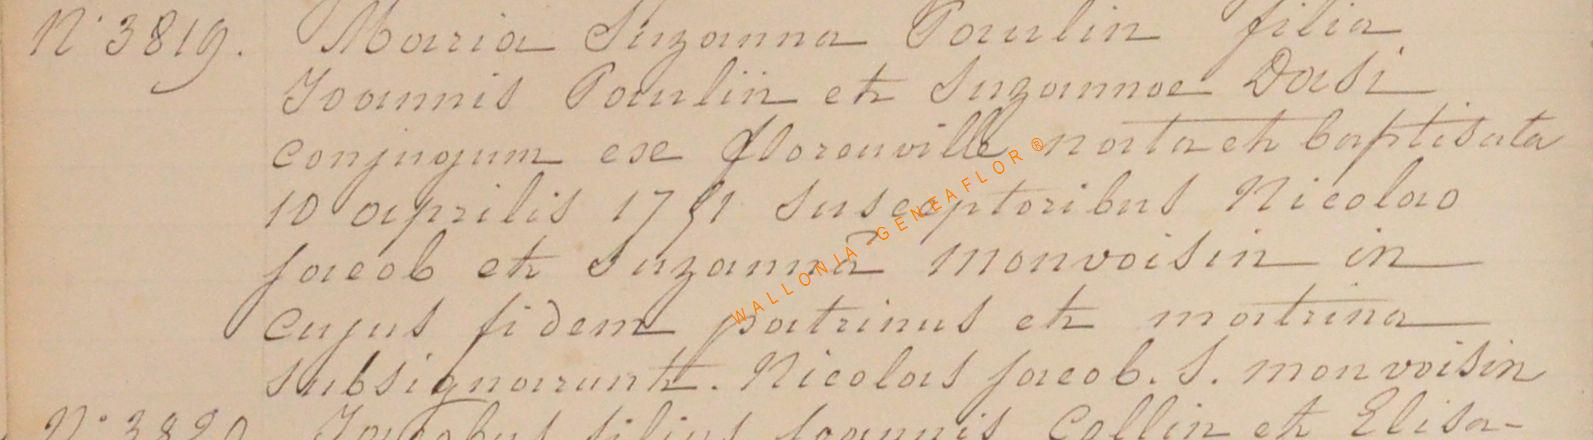 N° 3819. Maria Suzanna Paulin filia
Joannis Paulin et Suzannae Dasi
conjugum ex florenville nata et baptisata
10 aprilis 1791 susceptoribus Nicolao
jacob et Suzannâ monvoisin in
cujus fidem patrinus et matrina
subsignarunt. Nicolas jacob. S. monvoisin
N° 3820 Jacobus filius Joannis Collin et Elisa-
WALLONIA-GENEAFLOR ®